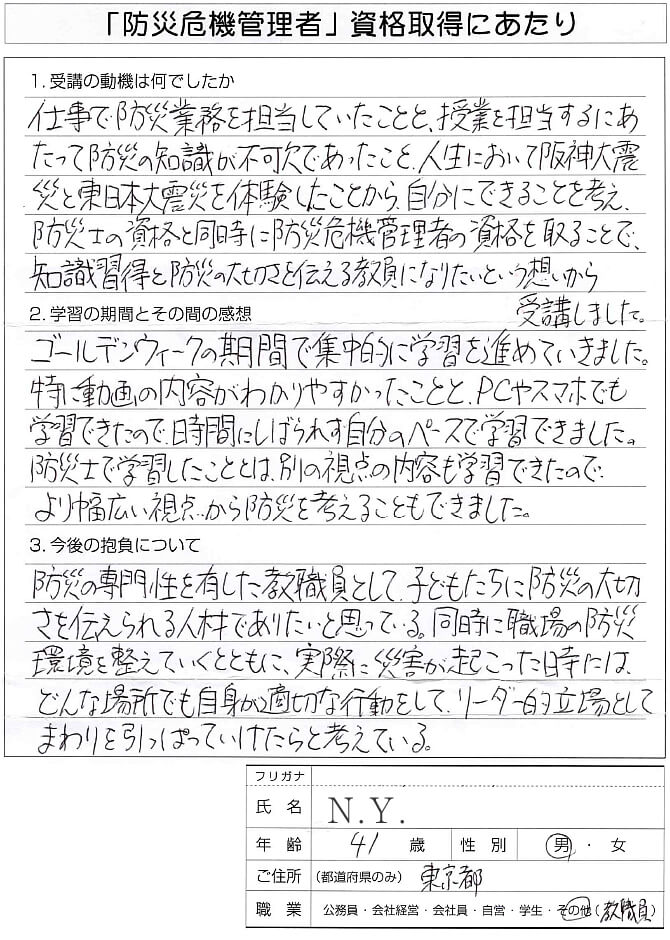 「防災危機管理者」資格取得にあたり
1. 受講の動機は何でしたか
仕事で防災業務を担当していたことと、授業を担当するにあ
たって防災の知識が不可欠であったこと、人生において阪神大震
災と東日本大震災を体験したことから、自分にできることを考え、
防災士の資格と同時に防災危機管理者の資格を取ることで、
知識習得と防災の大切さを伝える教員になりたいという想いから
受講しました。
2. 学習の期間とその間の感想
ゴールデンウィークの期間で集中的に学習を進めていきました。
特に動画の内容がわかりやすかったことと、PCやスマホでも
学習できたので、日時間にしばられず自分のペースで学習できました。
防災士で学習したこととは、別の視点の内容も学習できたので、
より幅広い視点から防災を考えることもできました。
3. 今後の抱負について
防災の専門性を有した教職員として、子どもたちに防災の大切
さを伝えられる人材でありたいと思っている。同時に職場の防災
環境を整えていくとともに、実際に災害が起こった時には、
どんな場所でも自身が適切な行動をして、リーダー的立場として
まわりを引っぱっていけたらと考えている。
フリガナ
氏名 N.Y.
年齢 41 歳 性別 男・女
ご住所 (都道府県のみ) 東京都
職業 公務員・会社経営・会社員・自営・学生・その他(教職員)